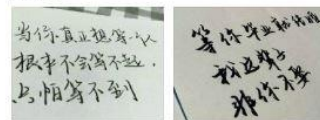 当你真正想等一个人
根本不会等不起.
只怕等不到
等你毕业就结婚
我这辈子
非你不娶